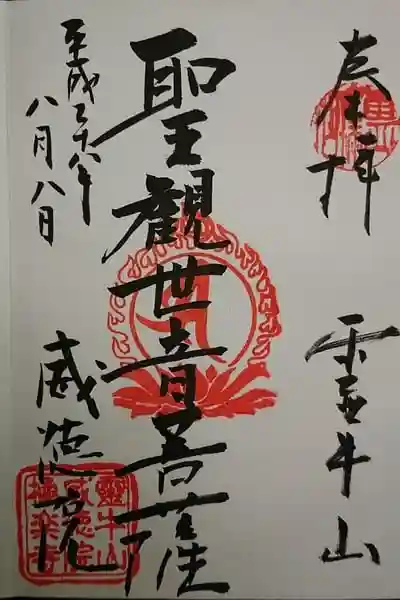 奉拝
霊牛山
聖觀世音菩薩
平成二十八年
八月八日
威徳院
靈牛山
威徳院
極楽寺